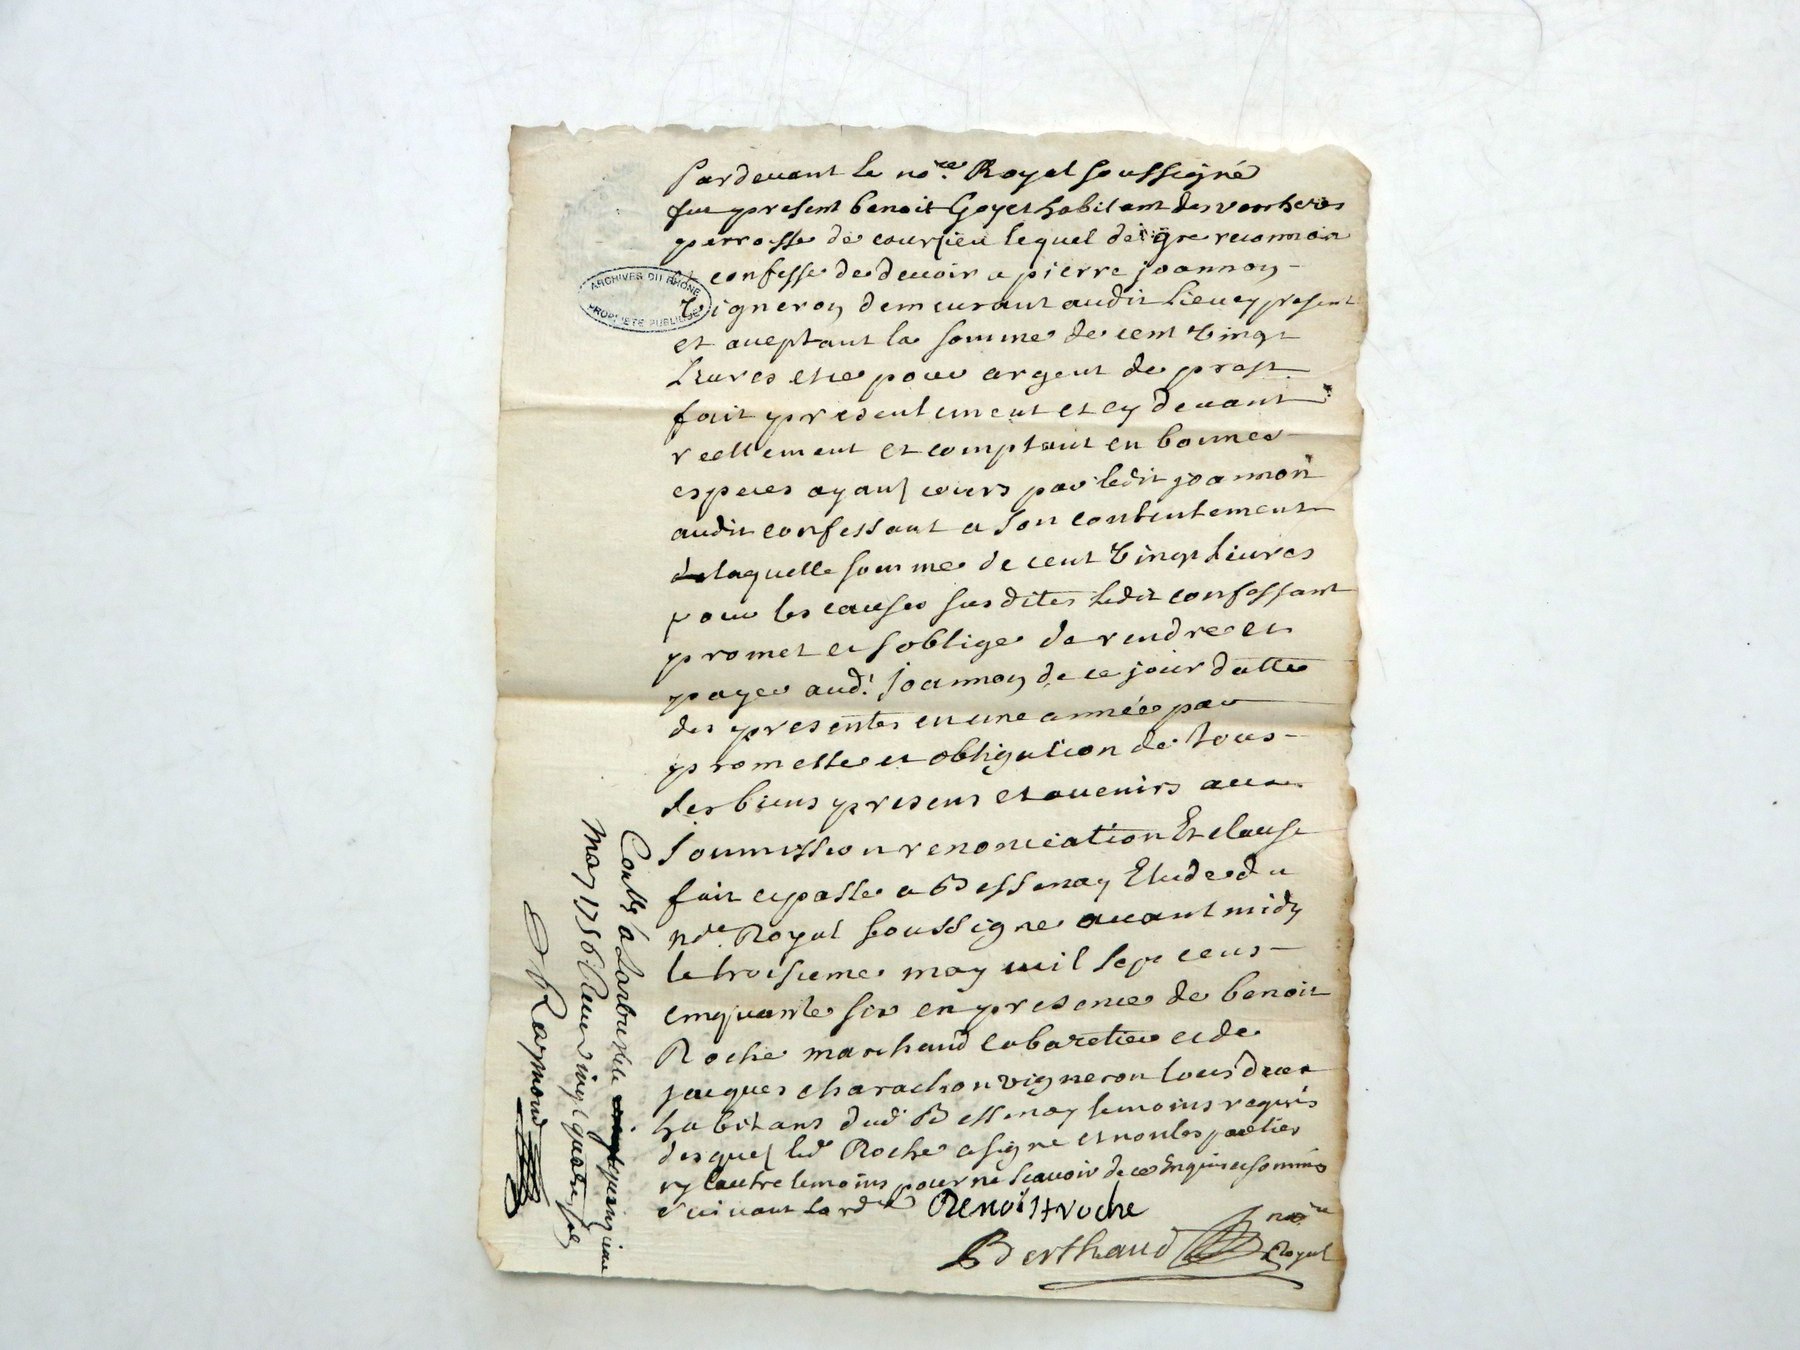 Pardevant le no.re Royal soussigné
fut present benoit Goyet habitant des vercheres
perroisse de courzieu lequel de gre reconnoit
et confesse de devoir a pierre joannon
vigneron demeurant audit lieu cy present
et aceptant la somme de cent vingt
Livres et ce pour argent de prest
fait presentement et cy devant
reellement et comptant en bonnes
especes ayant cours par ledit joannon
audit confessant a son contentement
laquelle somme de cent vingt Livres
pour les causes susdites ledit confessant
promet et s'oblige de rendre et
payer aud.t joannon de ce jour datte
des presentes en une année par
promesse et obligation de tous
ses biens presens et avenirs avec
soumission renonciation Et clause
fait et passé a Bessenay Etude du
no.re Royal soussigne avant midy
le troisieme may mil sept cens
cinquante six en presence de benoit
Roche marchand cabaretier et de
jacques charachon vigneron tous deux
habitans dud. Bessenay temoins requis
desquels led. Roche a signé et non les parties
ny l'autre temoins pour ne scavoir de ce Enquis et sommés
suivant l'ord.ce Benoit roche
Berthaud no.re
Royal
Conllé a Larbresle le quinzieme
may 1756 Receu vingt quatre sols
Raymond
ARCHIVES DU RHONE
PROPRIETE PUBLIQUE